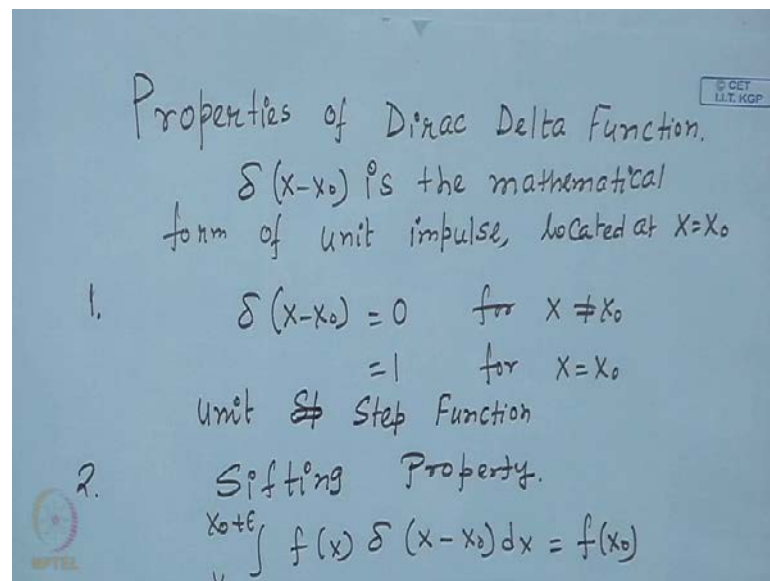 © CET
I.I.T. KGP
Properties of Dirac Delta Function.
δ (x-x₀) is the mathematical
form of unit impulse, located at x=x₀
1. δ (x-x₀) = 0 for x ≠ x₀
=1 for x = x₀
unit Step Function
2. Sifting Property.
x₀+ϵ
∫ f(x) δ (x-x₀) dx = f(x₀)
NPTEL